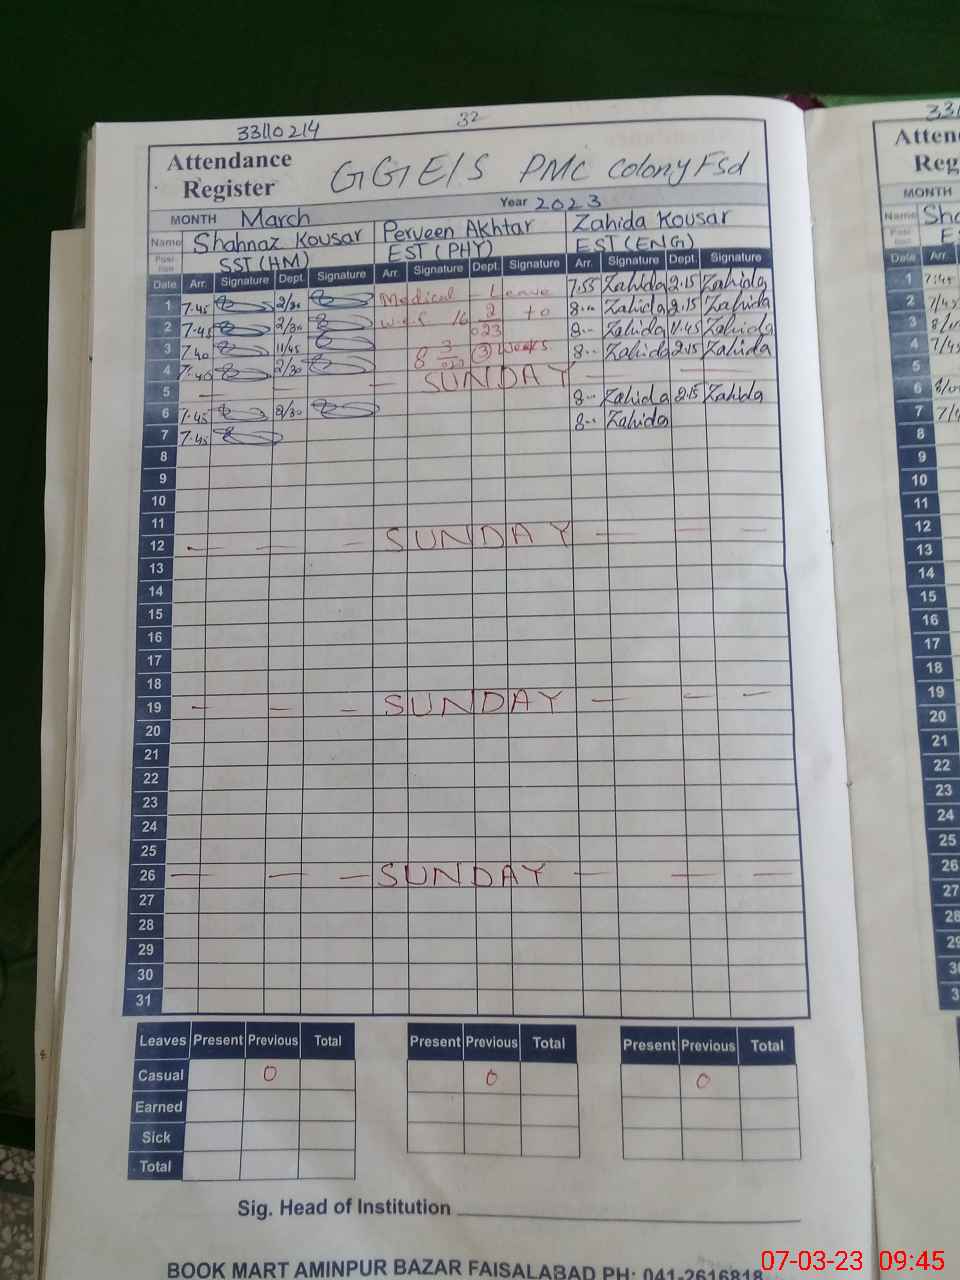 33110214
32
Attendance Register
GGE/S PMC Colony Fsd
Year 2023
MONTH March
Name Shahnaz Kousar Perveen Akhtar Zahida Kousar
Position SST (HM) EST (PHY) EST (ENG)
Date Arr. Signature Dept. Signature Arr. Signature Dept. Signature Arr. Signature Dept. Signature
1 7.45 2/30 Medical Leave 7.55 Zahida 2.15 Zahida
2 7.45 2/30 w.e.f 16 2 023 to 8.. Zahida 2.15 Zahida
3 7.40 11/45 8 3 (3) weeks 8.. Zahida 11.45 Zahida
4 7.40 2/30 8.. Zahida 2.15 Zahida
5 — — SUNDAY — —
6 7.45 2/30 8.. Zahida 2.15 Zahida
7 7.45 8.. Zahida
8
9
10
11
12 — — — SUNDAY — — —
13
14
15
16
17
18
19 — — — SUNDAY — — —
20
21
22
23
24
25
26 — — — SUNDAY — — —
27
28
29
30
31
Leaves Present Previous Total Present Previous Total Present Previous Total
Casual 0 0 0
Earned
Sick
Total
Sig. Head of Institution
BOOK MART AMINPUR BAZAR FAISALABAD PH: 041-2616818
33
Atten
Reg
MONTH
Name Sha
Position E
Date Arr.
1 7:45
2 7/45
3 8/0
4 7/45
5
6 8/0
7 7/4
8
9
10
11
12
13
14
15
16
17
18
19
20
21
22
23
24
25
26
27
28
29
07-03-23 09:45